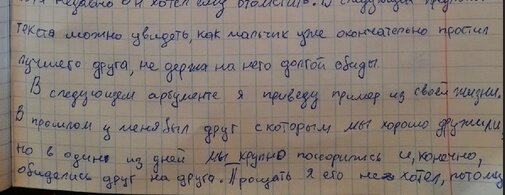 недавно он хотел ему отомстить. В следующих
текста можно увидеть, как мальчик уже окончательно простил
лучшего друга, не держа на него долгой обиды.
В следующем аргументе я приведу пример из своей жизни.
В прошлом у меня был друг с которым мы хорошо дружили,
но в один из дней мы крупно поссорились и, конечно,
обиделись друг на друга. Прощать я его не хотел, потому